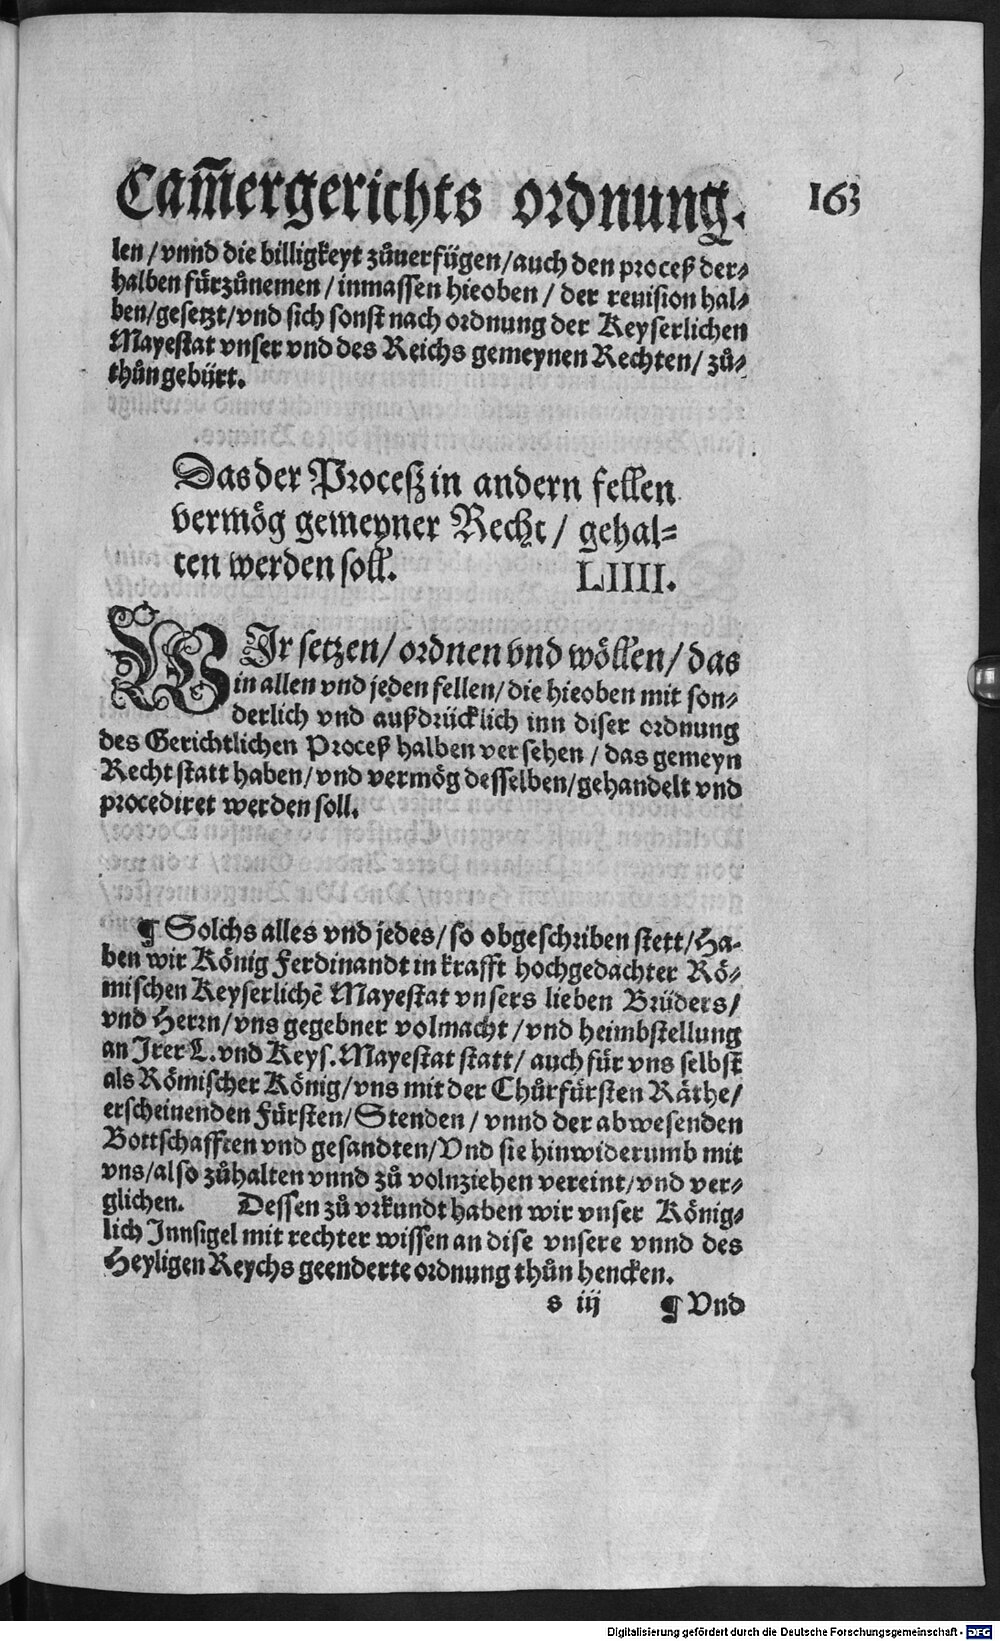 Cam̃ergerichts ordnung.
163
len / vnnd die billigkeyt zůuerfügen / auch den proceß der⸗
halben fürzůnemen / inmassen hieoben / der reuision hal⸗
ben / gesetzt / vnd sich sonst nach ordnung der Keyserlichen
Mayestat vnser vnd des Reichs gemeynen Rechten / zů⸗
thůn gebürt.
Das der Procesz in andern fellen
vermög gemeyner Recht / gehal⸗
ten werden soll. LIIII.
WIr setzen / ordnen vnd wöllen / das
in allen vnd jeden fellen / die hieoben mit son⸗
derlich vnd außdrücklich inn diser ordnung
des Gerichtlichen Proceß halben versehen / das gemeyn
Recht statt haben / vnd vermög desselben / gehandelt vnd
procediret werden soll.
¶ Solchs alles vnd jedes / so obgeschriben stett / Ha⸗
ben wir König Ferdinandt in krafft hochgedachter Rö⸗
mischen Keyserlichẽ Mayestat vnsers lieben Brüders /
vnd Herrn / vns gegebner volmacht / vnd heimbstellung
an Irer L. vnd Keys. Mayestat statt / auch für vns selbst
als Römischer König / vns mit der Chůrfürsten Räthe /
erscheinenden Fürsten / Stenden / vnnd der abwesenden
Bottschafften vnd gesandten / Vnd sie hinwiderumb mit
vns / also zůhalten vnnd zů volnziehen vereint / vnd ver⸗
glichen. Dessen zů vrkundt haben wir vnser König⸗
lich Innsigel mit rechter wissen an dise vnsere vnnd des
Heyligen Reychs geenderte ordnung thůn hencken.
s iij ¶ Vnd
Digitalisierung gefördert durch die Deutsche Forschungsgemeinschaft - DFG